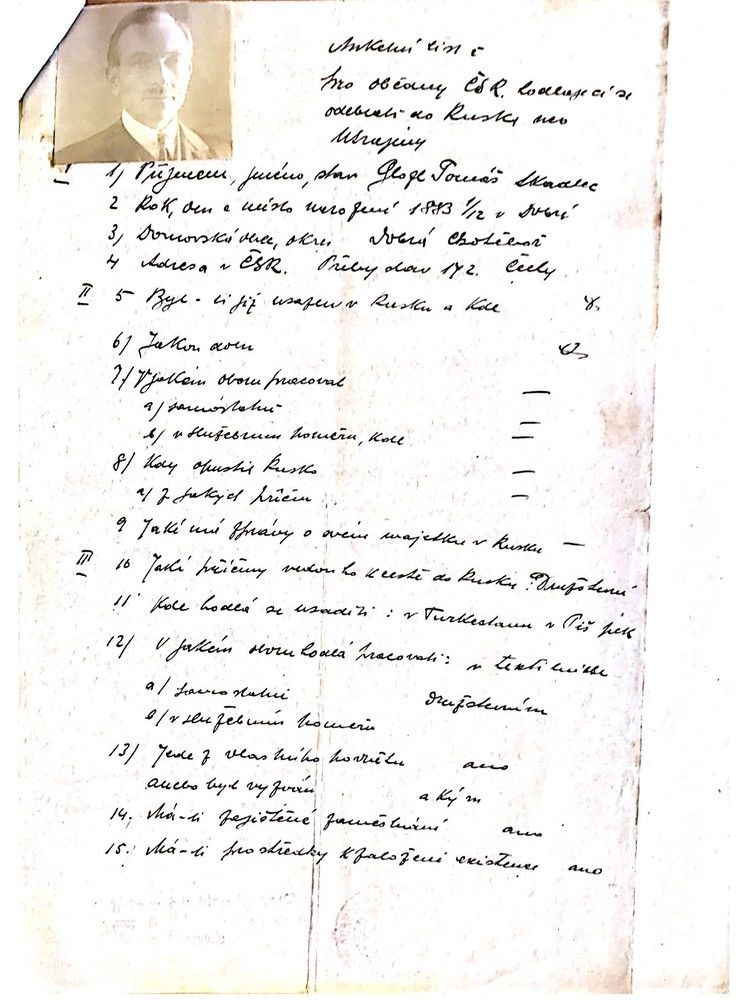 Anketní list
pro občany ČSR. hodlající se
odebrati do Ruska neb
Ukrajiny
I 1) Příjmení, jméno, stav Tomáš
2 Rok, den a místo narození 1883 1/12 v Dobré
3) Domovská obec, okres Dobrá
4 Adresa v ČSR. Přibyslav 172. Čechy
II 5 Byl-li již usazen v Rusku a Kde
6) Jakou dobu
7) V jakém oboru pracoval —
a) samostatně —
b) v služebním poměru, kde —
8) Kdy opustil Rusko —
a) z jakých příčin —
9 Jaké má zprávy o svém majetku v Rusku —
III 10 Jaké příčiny vedou ho k cestě do Ruska:
11 Kde hodlá se usaditi: v Turkestanu v Piš pek
12) V jakém oboru hodlá pracovati: v
a) samostatně družstevním
b) v služebním poměru
13) Jede z vlastního popudu ano
anebo byl vyzván a kým
14. Má-li zajištěné zaměstnání ano
15. Má-li prostředky k založení existence ano